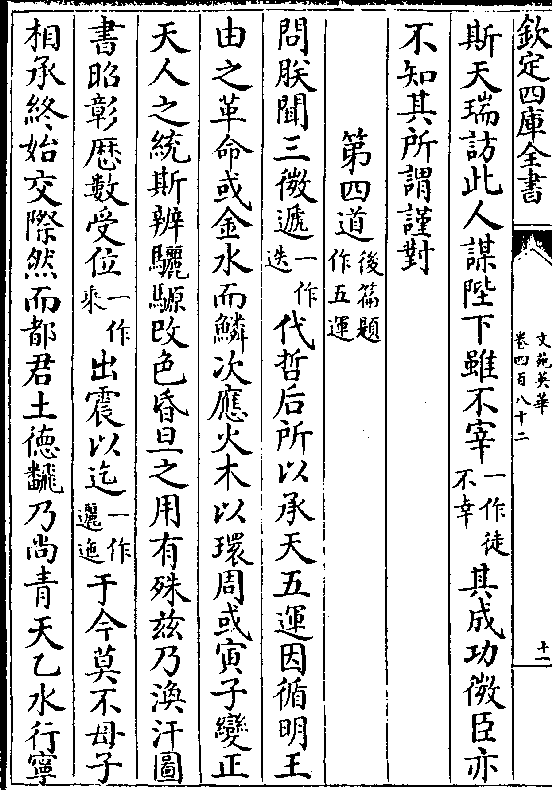 欽定四庫全書
文苑英華
卷四百八十二
十一
斯天瑞訪此人謀陛下雖不宰一作徒不幸其成功微臣亦
不知其所謂謹對
第四道後篇題作五運
問朕聞三微遞一作迭代哲后所以承天五運因循明王
由之革命或金水而鱗次應火木以環周或寅子變正
天人之統斯辨驪騵改色昏旦之用有殊兹乃渙汗圖
書昭彰厯數受位一作乘出震以迄一作邐迤于今莫不母子
相承終始交際然而都君土徳飜乃尚青天乙水行寧